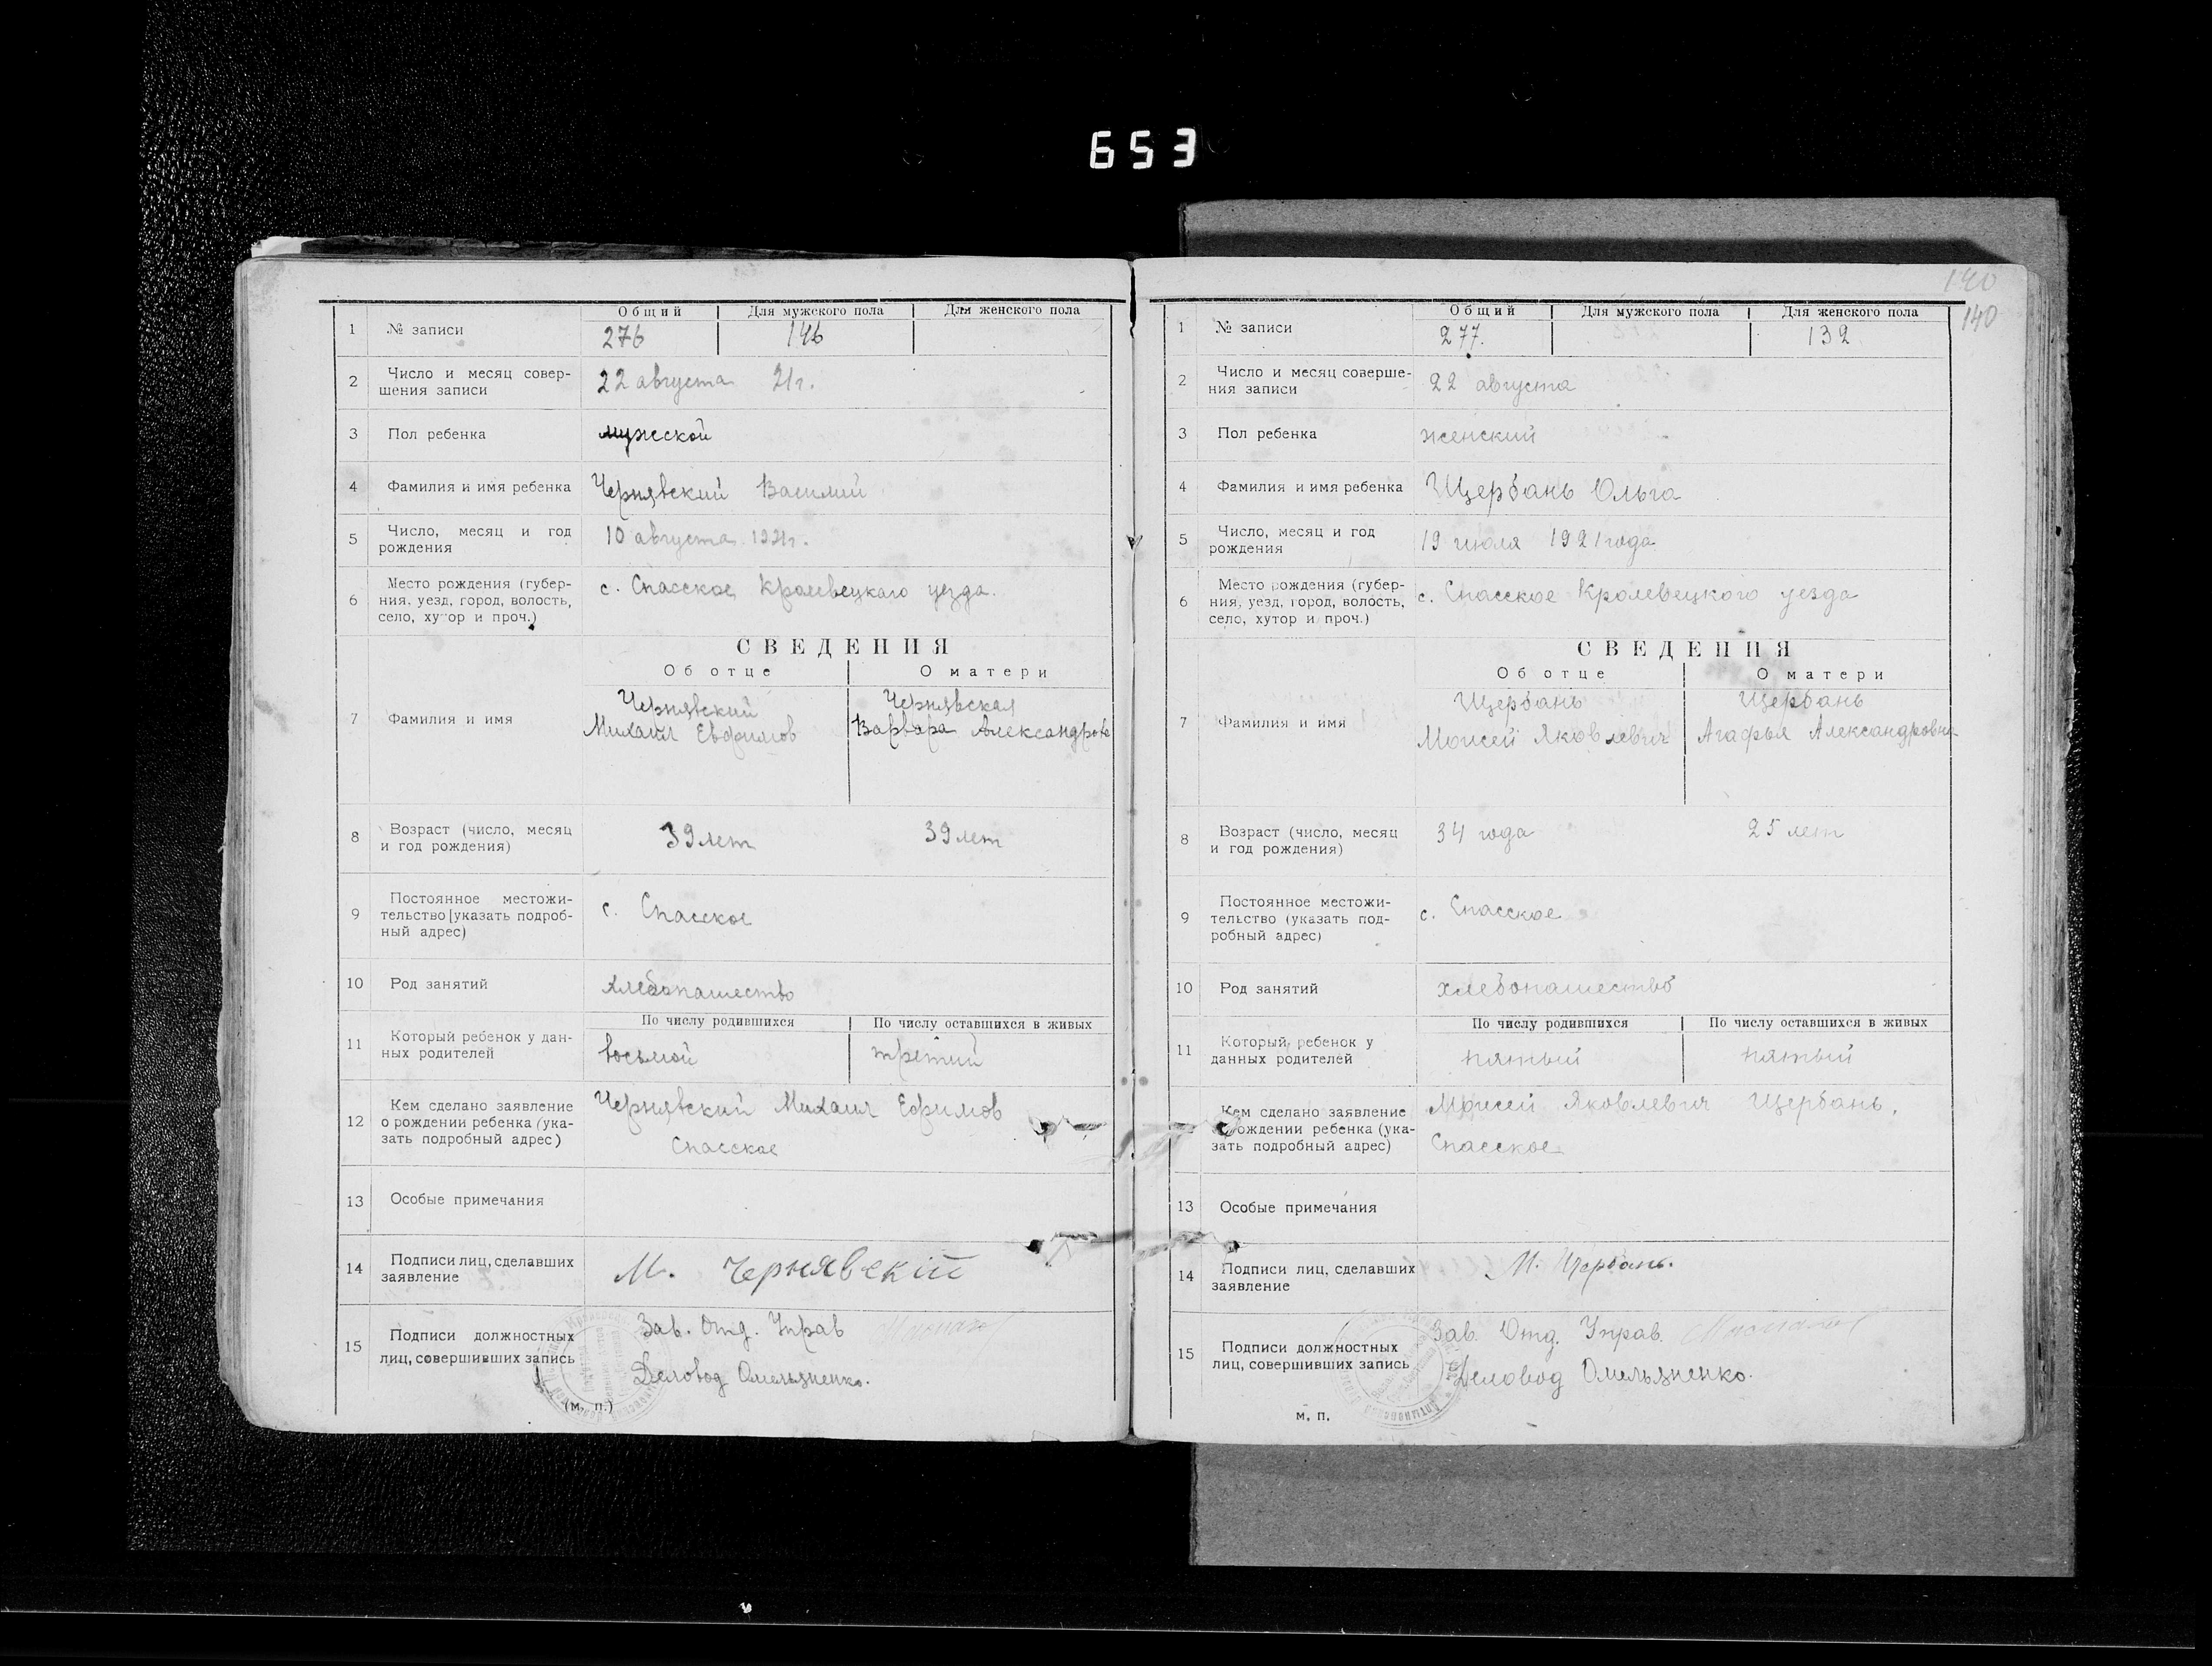 653
Общий Для мужского пола Для женского пола
1 № записи 276 146
2 Число и месяц совер-
шения записи 22 августа 21г.
3 Пол ребенка мужской
4 Фамилия и имя ребенка Чернявский Василий
5 Число, месяц и год
рождения 10 августа 1921г.
6 Место рождения (губер-
ния, уезд, город, волость,
село, хутор и проч.) с. Спасское Кролевецкаго уезда.
СВЕДЕНИЯ
Об отце О матери
7 Фамилия и имя
Чернявский Чернявская
Михаил Евфимов Варвара Александров
8 Возраст (число, месяц
и год рождения) 39 лет 39 лет
9 Постоянное местожи-
тельство [указать подроб-
ный адрес) с. Спасское
10 Род занятий хлебопашество
По числу родившихся По числу оставшихся в живых
11 Который ребенок у дан-
ных родителей восьмой третий
12 Кем сделано заявление
о рождении ребенка (ука-
зать подробный адрес) Чернявский Михаил Ефимов
Спасское
13 Особые примечания
14 Подписи лиц, сделавших
заявление М. Чернявскій
15 Подписи должностных
лиц, совершивших запись Зав. Отд. Управ
Деловод Омельяненко.
(м. п.)
140
140
Общий Для мужского пола Для женского пола
1 № записи 277. 132
2 Число и месяц соверше-
ния записи 22 августа
3 Пол ребенка женский
4 Фамилия и имя ребенка Щербань Ольга
5 Число, месяц и год
рождения 19 июля 1921 года
6 Место рождения (губер-
ния, уезд, город, волость,
село, хутор и проч.) с. Спасское Кролевецкого уезда
СВЕДЕНИЯ
Об отце О матери
7 Фамилия и имя
Щербань Щербань
Моисей Яковлевич Агафья Александровна
8 Возраст (число, месяц
и год рождения) 34 года 25 лет
9 Постоянное местожи-
тельство (указать под-
робный адрес) с. Спасское
10 Род занятий хлебопашество
По числу родившихся По числу оставшихся в живых
11 Который ребенок у
данных родителей пятый пятый
Кем сделано заявление
рождении ребенка (ука-
зать подробный адрес) Моисей Яковлевич Щербань,
Спасское
13 Особые примечания
14 Подписи лиц, сделавших
заявление М. Щербань.
15 Подписи должностных
лиц, совершивших запись Зав. Отд. Управ.
Деловод Омельяненко.
м. п.